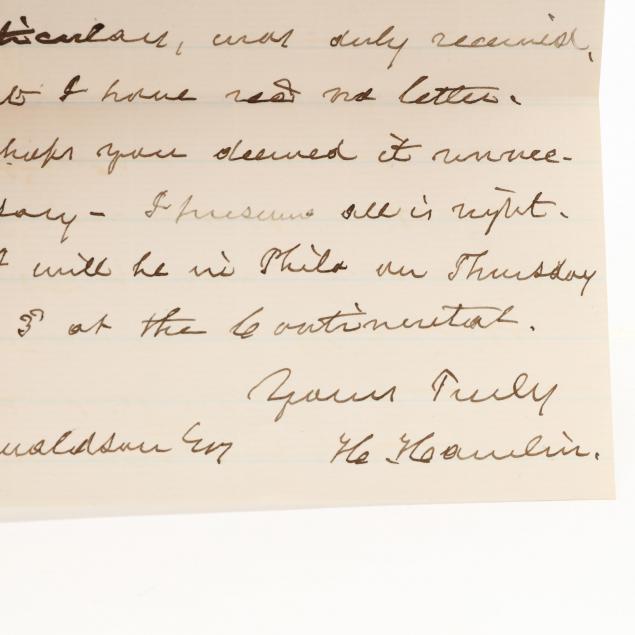 ticulars, was duly received,
I have recd no letter.
haps you deemed it unnec-
sary - I presume all is right.
I will be in Phila on Thursday
3d at the Continental.
Yours Truly
naldson Esq H. Hamlin.